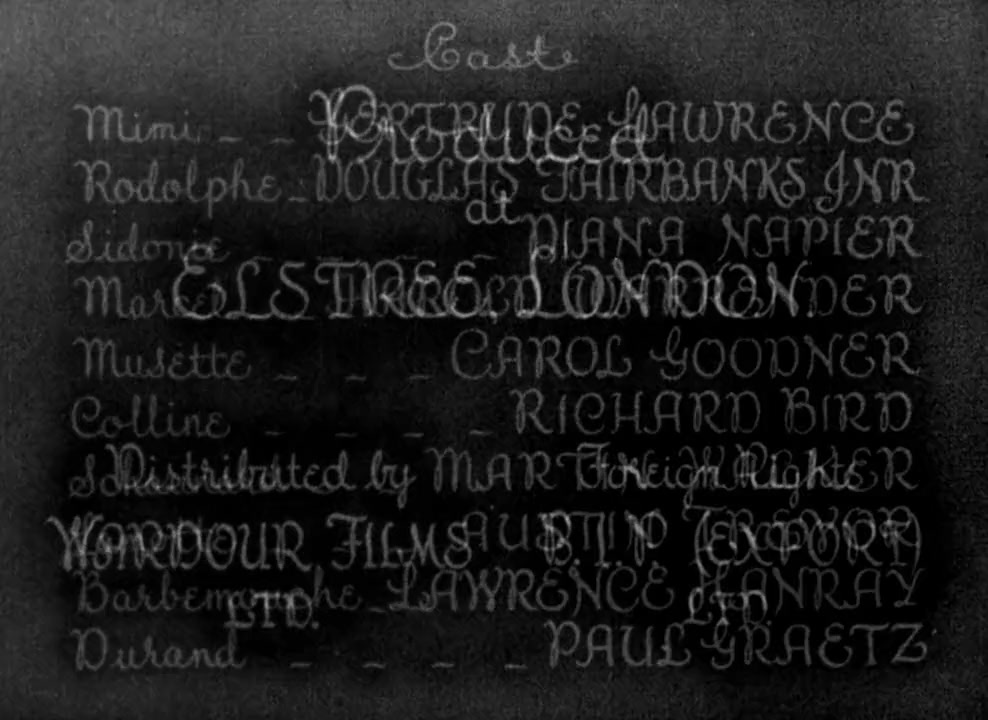 Cast
Mimi _ _ GERTRUDE LAWRENCE
Produced
Rodolphe _ DOUGLAS FAIRBANKS JNR.
at
Sidonie _ _ _ _ DIANA NAPIER
Marcel HAROLD WARRENDER
ELSTREE. LONDON.
Musette _ _ _ CAROL GOODNER
Colline _ _ _ _ RICHARD BIRD
Distributed by Foreign Rights
WARDOUR FILMS B.I.P. (EXPORT)
AUSTIN TREVOR
Barbemouche _ LAWRENCE HANRAY
LTD. LTD.
Durand _ _ _ _ PAUL GRAETZ